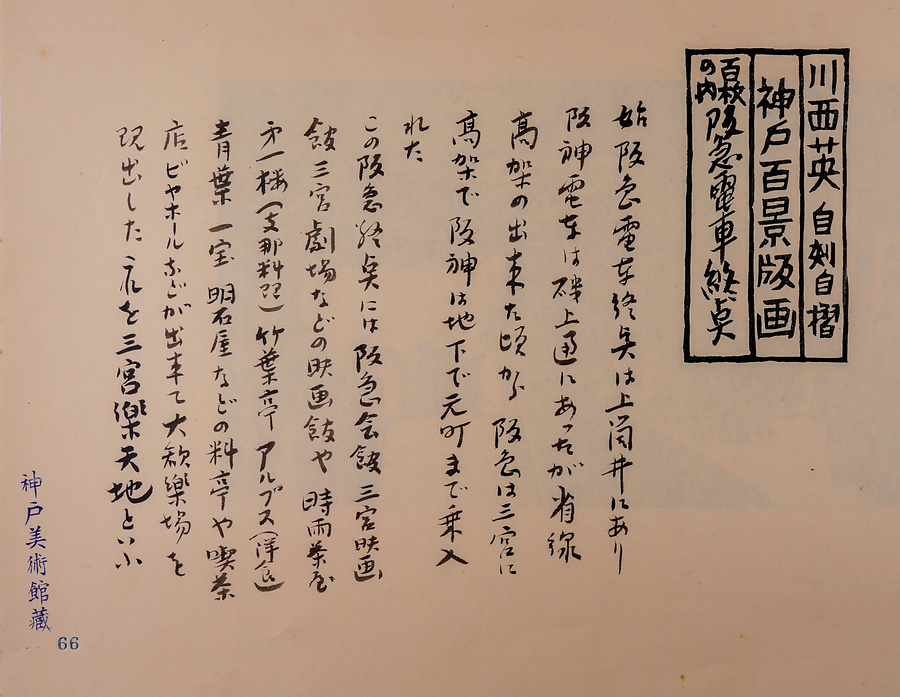 川西英 自刻自摺
神戸百景版画
百枚の内 阪急電車終点
始阪急電車終点は上筒井にあり
阪神電車は磯上通にあったが省線
高架の出来た頃から阪急は三宮に
高架で阪神は地下で元町まで乗入
れた
この阪急終点には阪急会館三宮映画
館三宮劇場などの映画館や時雨茶屋
第一楼(支那料理)竹葉亭アルプス(洋食)
青葉一宝明石屋などの料亭や喫茶
店ビヤホールなどが出来て大歓楽場を
現出した 之を三宮楽天地といふ
神戸美術館蔵
66